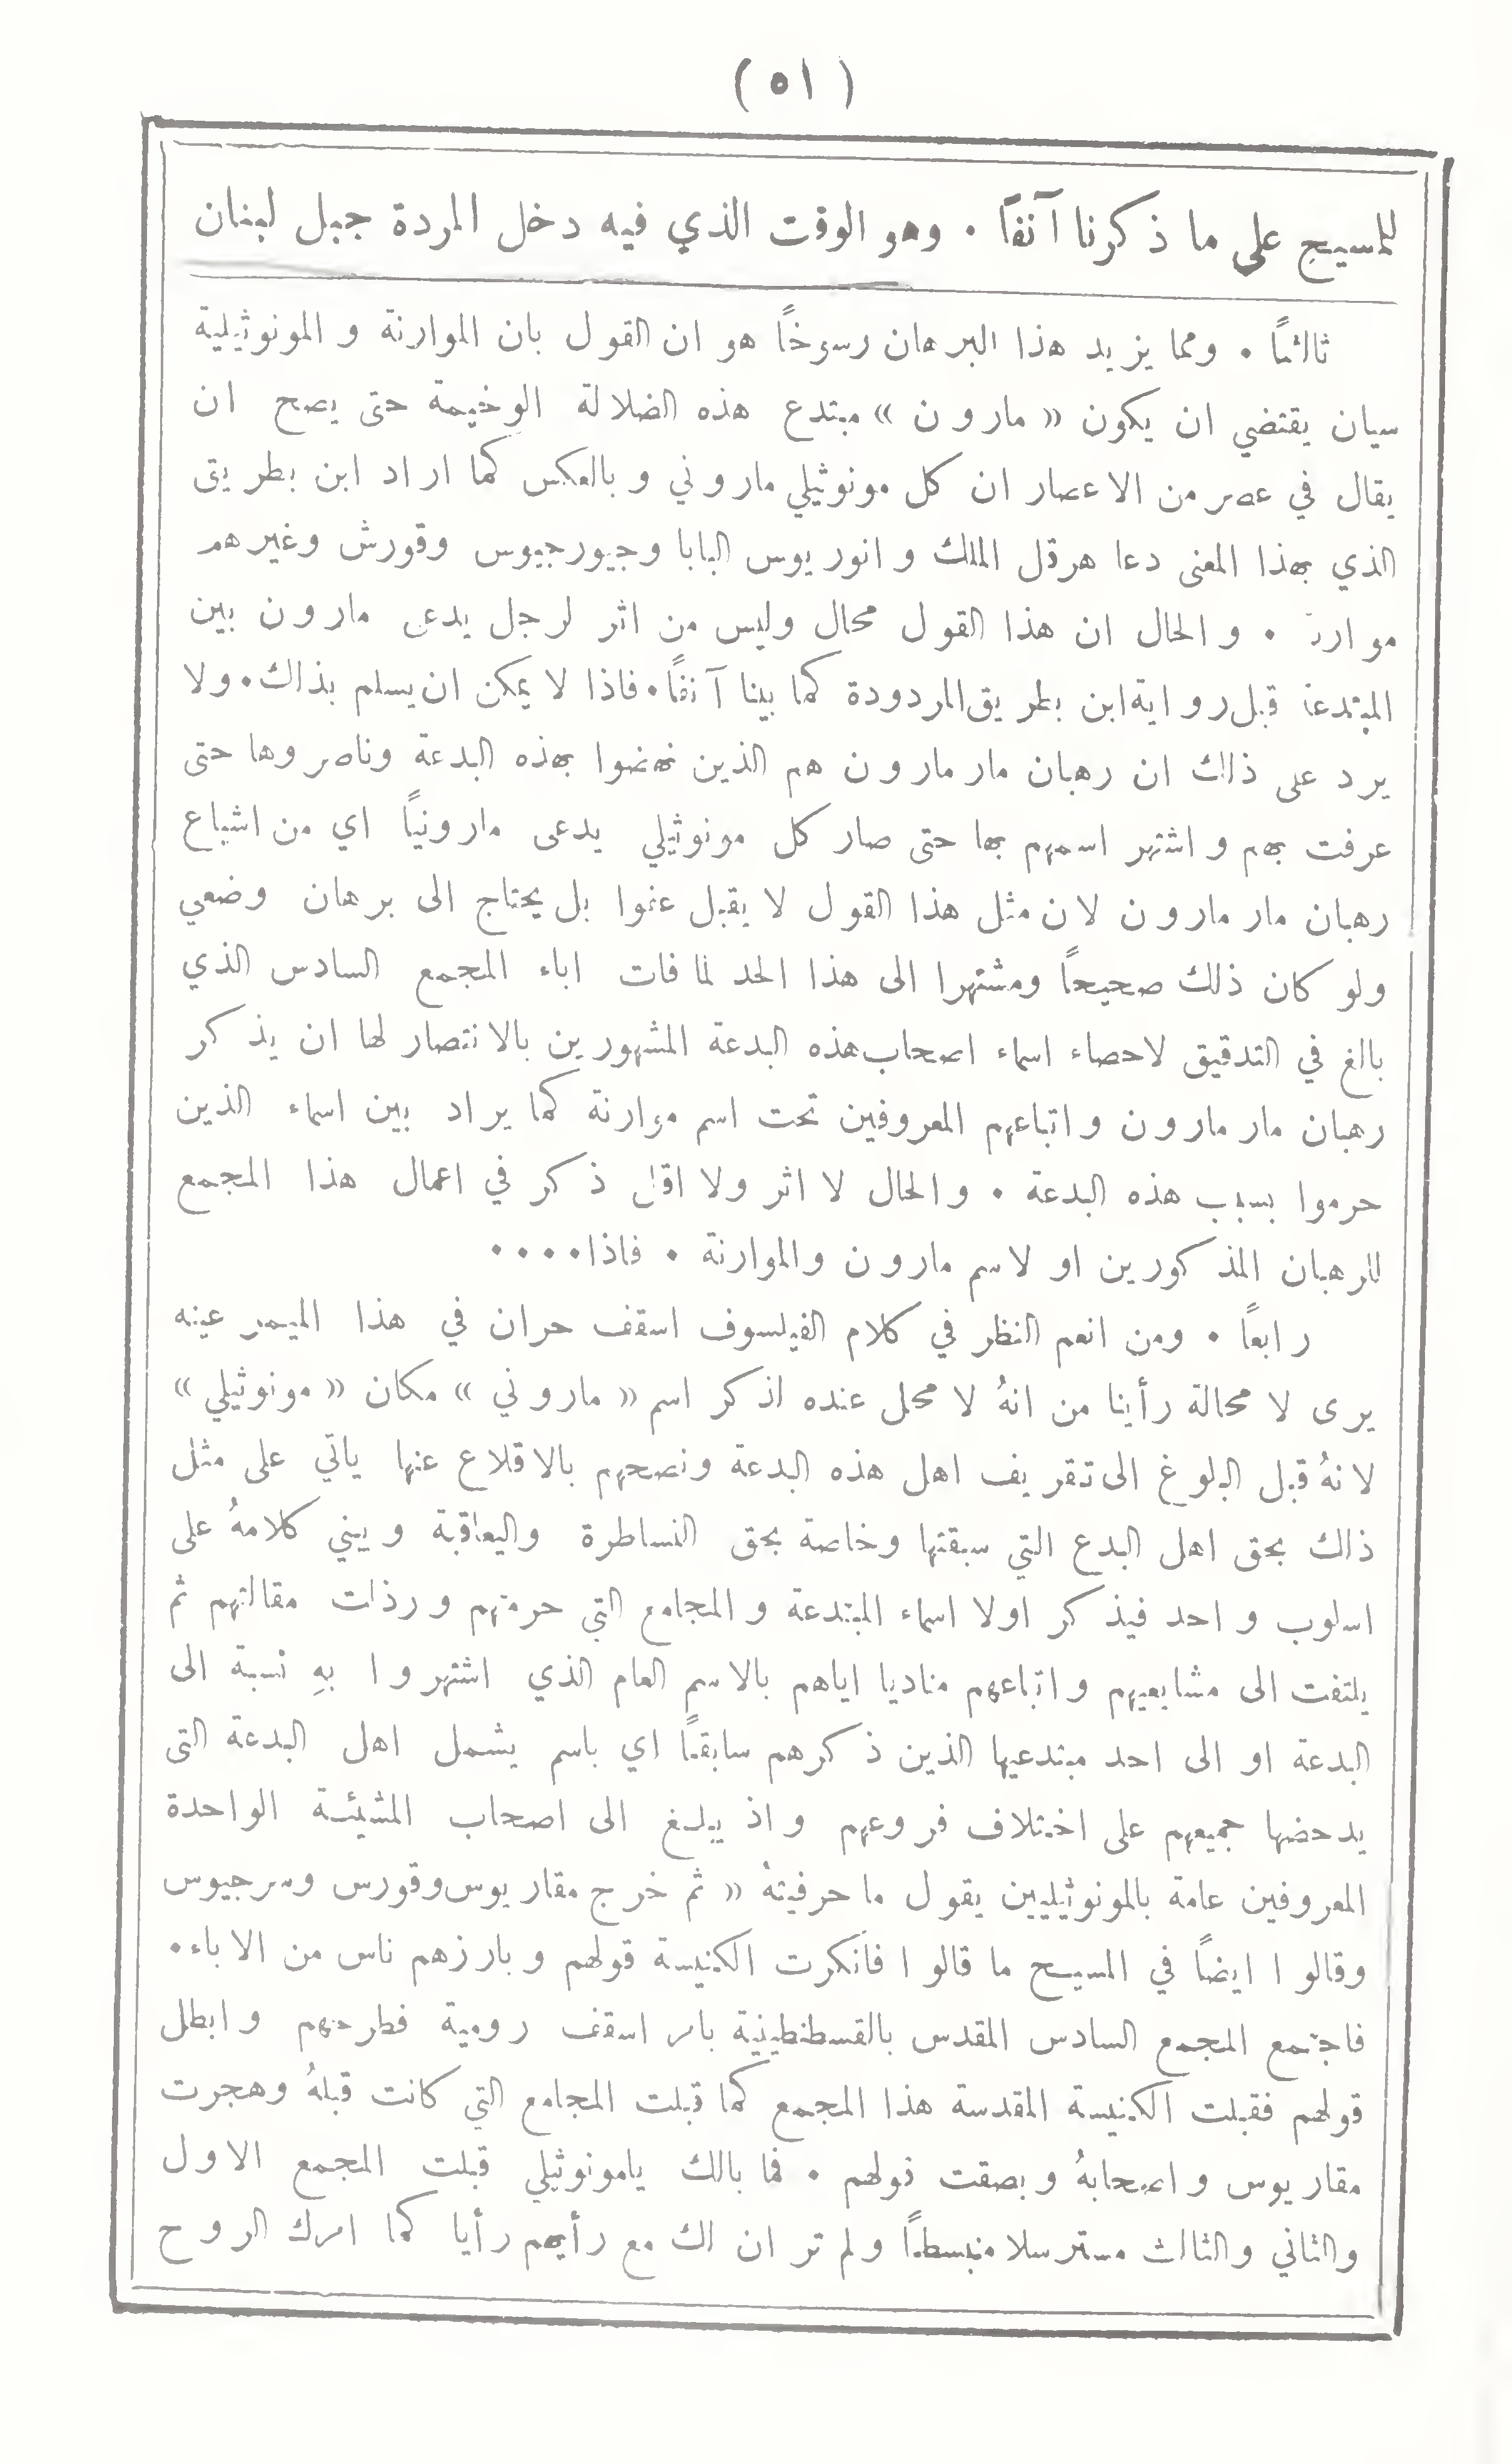 ( ٥١ )
للمسيح على ما ذكرنا آنفاً . وهو الوقت الذي فيه دخل المردة جبل لبنان
ثالثاً . ومما يزيد هذا البرهان رسوخاً هو ان القول بان الموارنة و المونوثيلية
سيان يقتضي ان يكون « مارون » مبتدع هذه الضلالة الوخيمة حتى يصح ان
يقال في عصر من الاعصار ان كل مونوثيلي ماروني وبالعكس كما اراد ابن بطريق
الذي بهذا المعنى دعا هرقل الملك وانوريوس البابا وجيورجيوس وقورش وغيرهم
موارنة . والحال ان هذا القول محال وليس من اثر لرجل يدعى مارون بين
المبتدعة قبل رواية ابن بطريق المردودة كما بينا آنفاً . فاذا لا يمكن ان يسلم بذلك . ولا
يرد على ذلك ان رهبان مار مارون هم الذين نهضوا بهذه البدعة وناصروها حتى
عرفت بهم واشتهر اسمهم بها حتى صار كل مونوثيلي يدعى مارونياً اي من اشياع
رهبان مار مارون لان مثل هذا القول لا يقبل عفوا بل يحتاج الى برهان وضعي
ولو كان ذلك صحيحاً ومشتهرا الى هذا الحد لما فات اباء المجمع السادس الذي
بالغ في التدقيق لاحصاء اسماء اصحاب هذه البدعة المشهورين بالانتصار لها ان يذكر
رهبان مار مارون واتباعهم المعروفين تحت اسم موارنة كما يراد بين اسماء الذين
حرموا بسبب هذه البدعة . والحال لا اثر ولا اقل ذكر في اعمال هذا المجمع
للرهبان المذكورين او لاسم مارون والموارنة . فاذا . . . .
رابعاً . ومن انعم النظر في كلام الفيلسوف اسقف حران في هذا الميمر عينه
يرى لا محالة رأينا من انهُ لا محل عنده لذكر اسم « ماروني » مكان « مونوثيلي »
لانهُ قبل البلوغ الى تقريف اهل هذه البدعة ونصحهم بالاقلاع عنها ياتي على مثل
ذلك بحق اهل البدع التي سبقتها وخاصة بحق النساطرة واليعاقبة ويبني كلامهُ على
اسلوب واحد فيذكر اولا اسماء المبتدعة والمجامع التي حرمتهم ورذلت مقالتهم ثم
يلتفت الى مشايعيهم واتباعهم مناديا اياهم بالاسم العام الذي اشتهروا بهِ نسبة الى
البدعة او الى احد مبتدعيها الذين ذكرهم سابقاً اي باسم يشمل اهل البدعة التى
يدحضها جميعهم على اختلاف فروعهم واذ يبلغ الى اصحاب المشيئة الواحدة
المعروفين عامة بالمونوثيليين يقول ما حرفيتهُ « ثم خرج مقاريوس وقورس وسرجيوس
وقالوا ايضاً في المسيح ما قالوا فأنكرت الكنيسة قولهم وبارزهم ناس من الاباء .
فاجتمع المجمع السادس المقدس بالقسطنطينية بامر اسقف رومية فطرحهم وابطل
قولهم فقبلت الكنيسة المقدسة هذا المجمع كما قبلت المجامع التي كانت قبلهُ وهجرت
مقاريوس واصحابهُ وبصقت قولهم . فما بالك يامونوثيلي قبلت المجمع الاول
والثاني والثالث مسترسلا منبسطاً ولم تر ان لك مع رأيهم رأيا كما امرك الروح